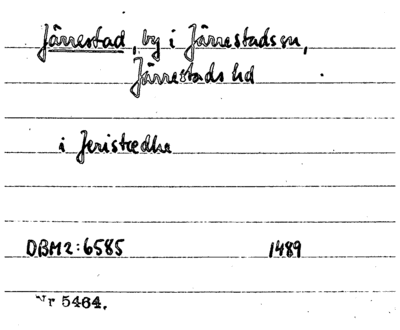 Järrestad, by i Järrestads sn,
Järrestads hd
i Jeristædhe
DBM2:6585 1489
Nr 5464.